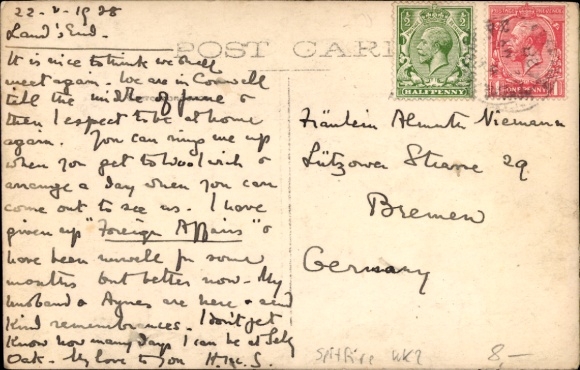 22-V-1928
Land's End.
POST CARD
It is nice to think we shall
meet again. We are in Cornwall
till the middle of June &
then I expect to be at home
again. You can ring me up
when you get to Woolwich &
arrange a day when you can
come out to see us. I have
given up "Foreign Affairs" &
have been unwell for some
months but better now. My
husband & Agnes are here & send
kind remembrances. I don't yet
know how many days I can be at Selly
Oak. My love to you H.M.S.
HALFPENNY
ONE PENNY
Fräulein Almuth Niemann
Lützower Strasse 29
Bremen
Germany
Spitfire WK2
8,-